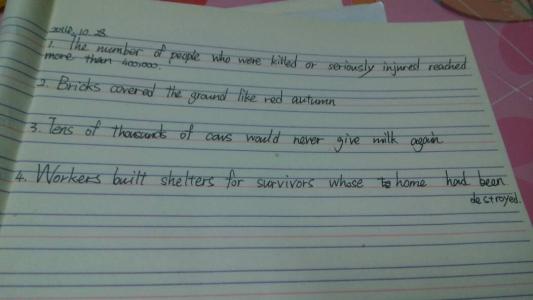 2014.10.8
1. The number of people who were killed or seriously injured reached
more than 400.000.
2. Bricks covered the ground like red autumn
3. Tens of thousands of cows would never give milk again
4. Workers built shelters for survivors whose home had been
destroyed.